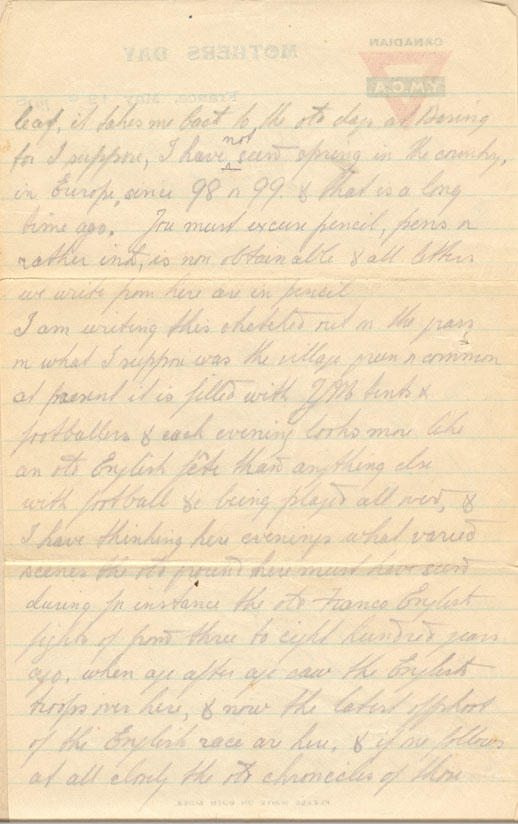 leaf, it takes me back to the old days at Boring
for I suppose, I have not seen spring in the country,
in Europe, since 98 or 99. & that is a long
time ago. You must excuse pencil, pens or
rather ink, is non obtainable & all letters
we write from here are in pencil
I am writing this stretched out on the grass
on what I suppose was the village green or common
at present it is filled with YMB tents &
footballers & each evening looks more like
an old English fête than anything else
with football &c being played all over, &
I have thinking here evenings what varied
scenes the old ground here must have seen
during for instance the old Franco English
fights of from three to eight hundred years
ago, when age after age saw the English
troops over here, & now the latest offshoot
of the English race are here, & if one follows
at all closely the old chronicles of those